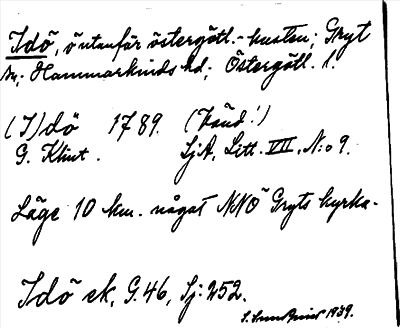 Idö, ö utanför östergötl.-kusten; Gryt
sn; Hammarkinds hd; Östergötl. l.
(I)dö 1789. (känd!)
G. Klint. SjA, Litt. VII, N:o 9.
Läge 10 km. något NNÖ Gryts kyrka.
Idö ek, G.46, Sj: 252.
1939.